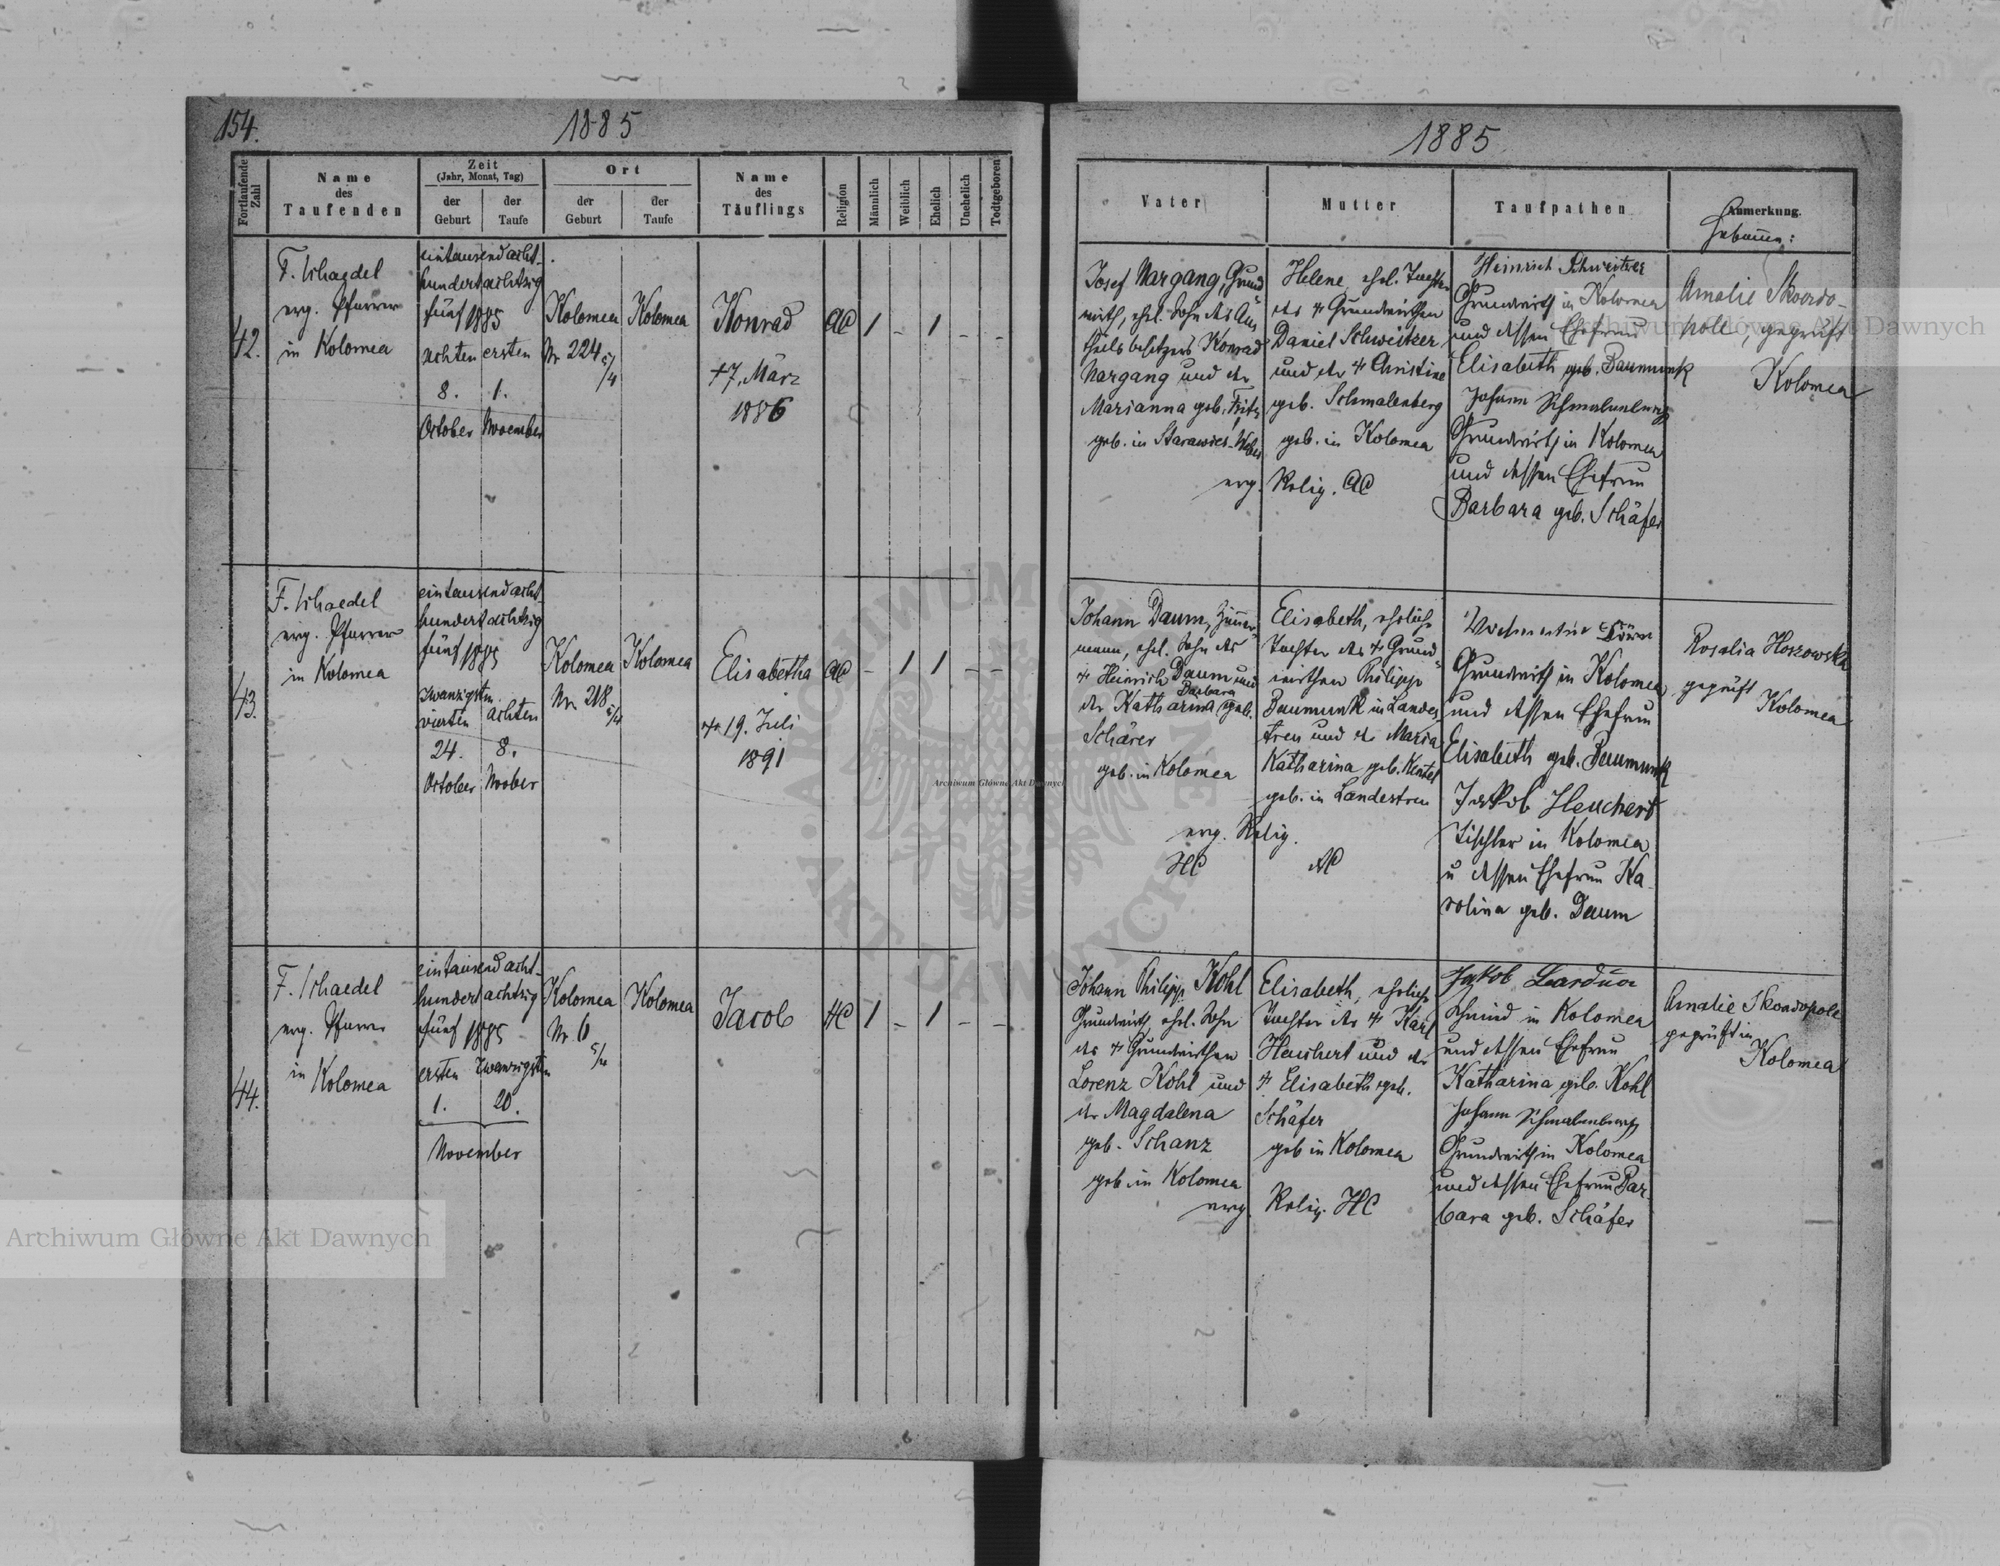 154.
1885
Fortlaufende Zahl
Name des Taufenden
Zeit
(Jahr, Monat, Tag)
der Geburt
der Taufe
Ort
der Geburt
der Taufe
Name des Täuflings
Religion
Männlich
Weiblich
Ehelich
Unehelich
Todtgeboren
42.
F. Schaedel
erg. Pfarrer
in Kolomea
eintausend acht-
hundert achtzig
fünf 1885
achten ersten
8. 1.
October November
Kolomea
Nr 224 5/4
Kolomea
Konrad
+ 7. März
1886
AC
1 - 1 - -
43.
F. Schaedel
erg. Pfarrer
in Kolomea
eintausend acht-
hundert achtzig
fünf 1885
zwanzigsten
vierten achten
24. 8.
October Novber
Kolomea
Nr. 218 5/4
Kolomea
Elisabetha
+ 19. Juli
1891
AC
- 1 1 - -
44.
F. Schaedel
erg. Pfarrer
in Kolomea
eintausend acht-
hundert achtzig
fünf 1885
ersten zwanzigsten
1. 20.
November
Kolomea
Nr 6
5/4
Kolomea
Jacob
HC
1 - 1 - -
1885
Vater
Mutter
Taufpathen
Anmerkung.
Hebamme:
Josef Nargang, Grund
wirth, ehel. Sohn des An-
theilsbesitzers Konrad
Nargang und der
Marianna geb. Fritz
geb. in
erg.
Helene, ehel. Tochter
des + Grundwirthen
Daniel Schweitzer
und der + Christine
geb. Schmalenberg
geb. in Kolomea
Relig. AC
Heinrich Schweitzer
Grundwirth in Kolomea
und dessen Ehefrau
Elisabeth geb. Baumunk
Johann Schmalenberg
Grundwirth in Kolomea
und dessen Ehefrau
Barbara geb. Schäfer
Amalie Skordo-
pole, geprüft
Kolomea
Johann Daum, Zimmer-
mann, ehel. Sohn des
+ Heinrich Daum und
Barbara
der Katharina geb.
Schärer
geb. in Kolomea
erg. Relig.
HC
Elisabeth, eheliche
Tochter des + Grund-
wirthen Philipp
Baumunk in Landes-
treu und der Maria
Katharina geb. Kentel
geb. in Landestreu
AC
Grundwirth in Kolomea
und dessen Ehefrau
Elisabeth geb. Baumunk
Jakob Heuchert
Tischler in Kolomea
u dessen Ehefrau Ka-
rolina geb. Daum
Rosalia Hoszowska
geprüft
Kolomea
Johann Philipp Kohl
Grundwirth, ehel. Sohn
des + Grundwirthen
Lorenz Kohl und
der Magdalena
geb. Schanz
geb. in Kolomea
erg.
Elisabeth, eheliche
Tochter des + Karl
Heuchert und der
+ Elisabeth geb.
Schäfer
geb in Kolomea
Relig. HC
Jakob
Schmied in Kolomea
und dessen Ehefrau
Katharina geb. Kohl
Johann Schmalenberg
Grundwirth in Kolomea
und dessen Ehefrau Bar-
bara geb. Schäfer
Amalie Skordopole
geprüft in
Kolomea
Archiwum Główne Akt Dawnych
Archiwum Główne Akt Dawnych
Archiwum Główne Akt Dawnych